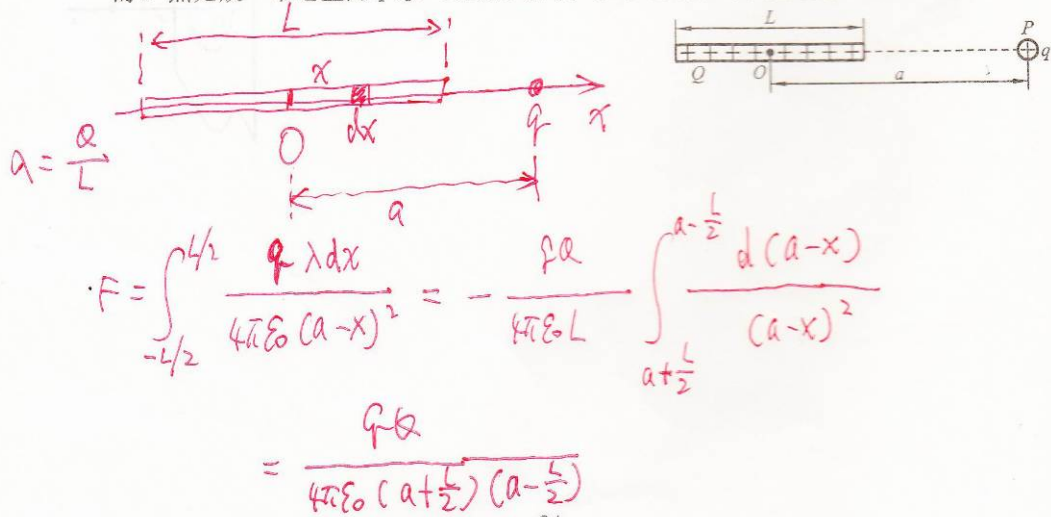 L
x
dx
O
q
x
a
L
Q
O
a
P
q
a = Q/L
F = ∫_{-L/2}^{L/2} qλdx / 4πε₀(a-x)² = - qQ / 4πε₀L ∫_{a+L/2}^{a-L/2} d(a-x) / (a-x)²
= qQ / 4πε₀(a+L/2)(a-L/2)